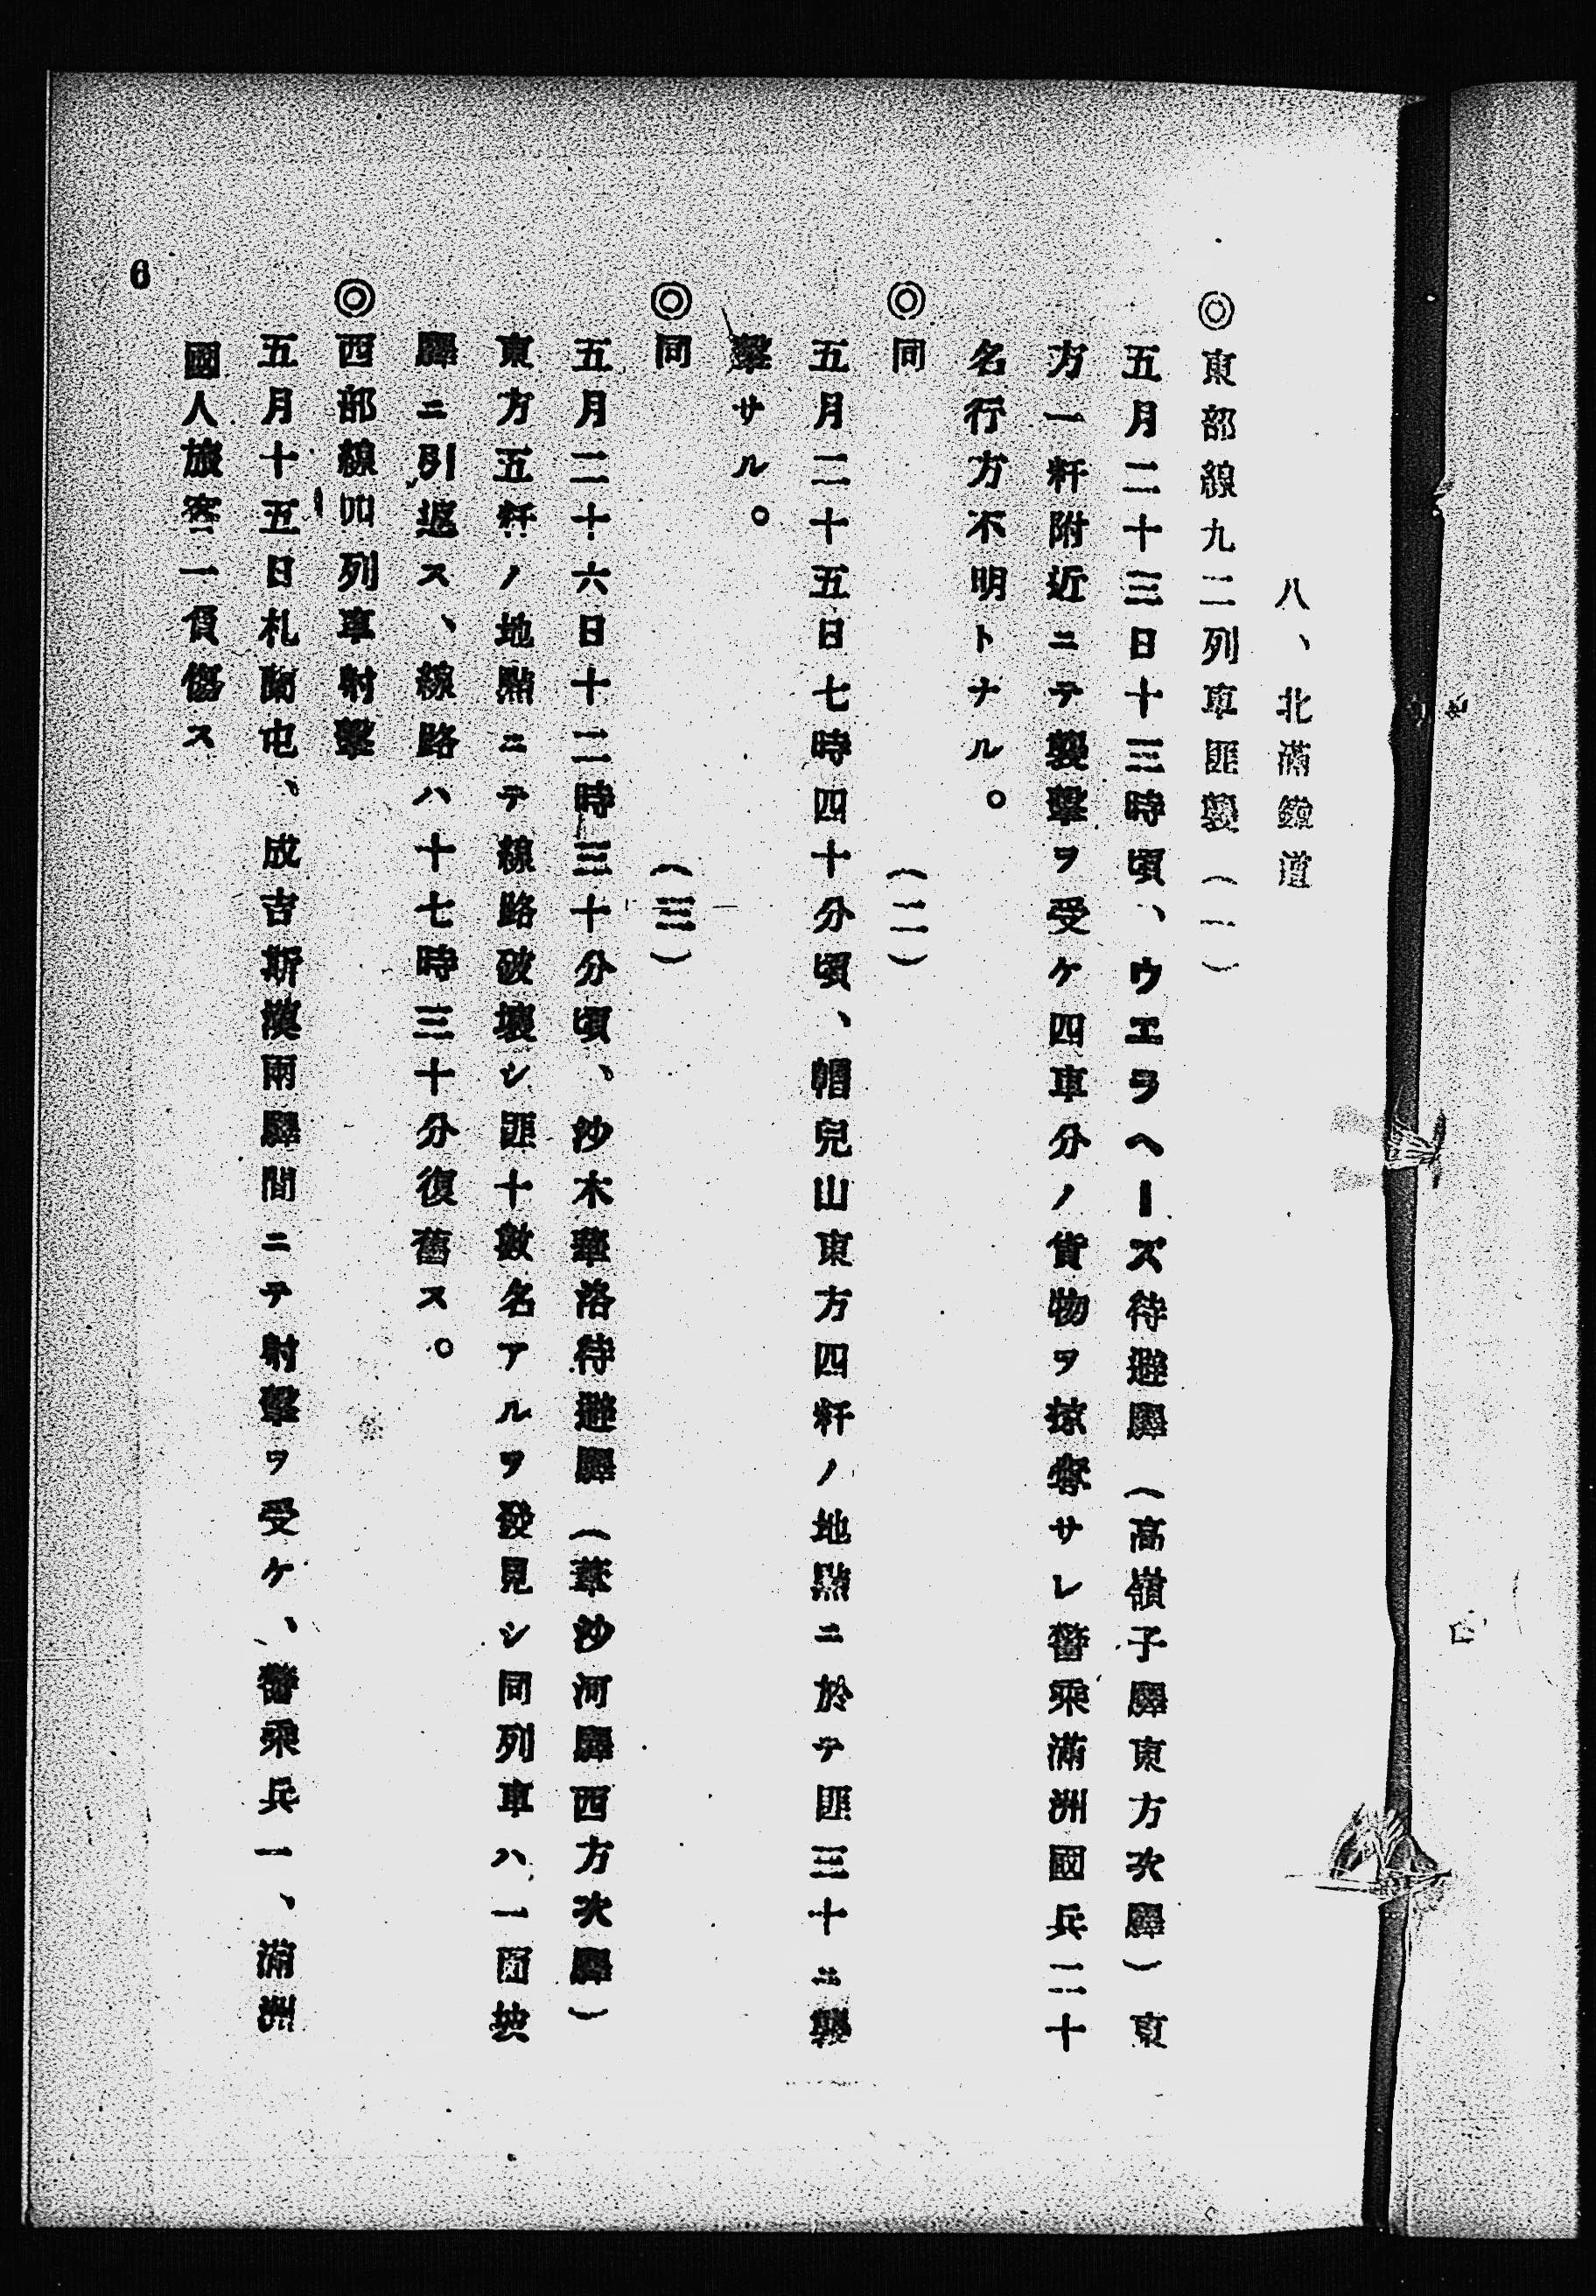 八、北滿鐵道
◎東部線九二列車匪襲（一）
五月二十三日十三時頃、ウエラヘーズ待避驛（高嶺子驛東方次驛）東
方一粁附近ニテ襲擊ヲ受ケ四車分ノ貨物ヲ掠奪サレ警乘滿洲國兵二十
名行方不明トナル。
◎同（二）
五月二十五日七時四十分頃、帽兒山東方四粁ノ地點ニ於テ匪三十ニ襲
擊サル。
◎同（三）
五月二十六日十二時三十分頃、沙木葦洛待避驛（葦沙河驛西方次驛）
東方五粁ノ地點ニテ線路破壞シ匪十數名アルヲ發見シ同列車ハ一面坡
驛ニ引返ス、線路ハ十七時三十分復舊ス。
◎西部線四列車射擊
五月十五日札蘭屯、成吉斯漢兩驛間ニテ射擊ヲ受ケ、警乘兵一、滿洲
國人旅客一負傷ス
6